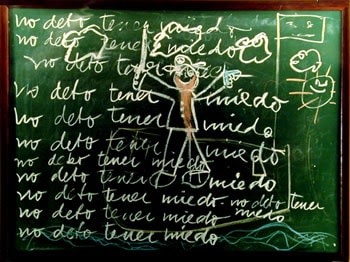 no debo tener miedo
no debo tener miedo
no debo tener
no debo tener miedo
no debo tener miedo.
no debo tener miedo
no debo tener miedo
no debo tener miedo
no debo tener miedo. no debo tener
no debo tener miedo miedo
no debo tener miedo